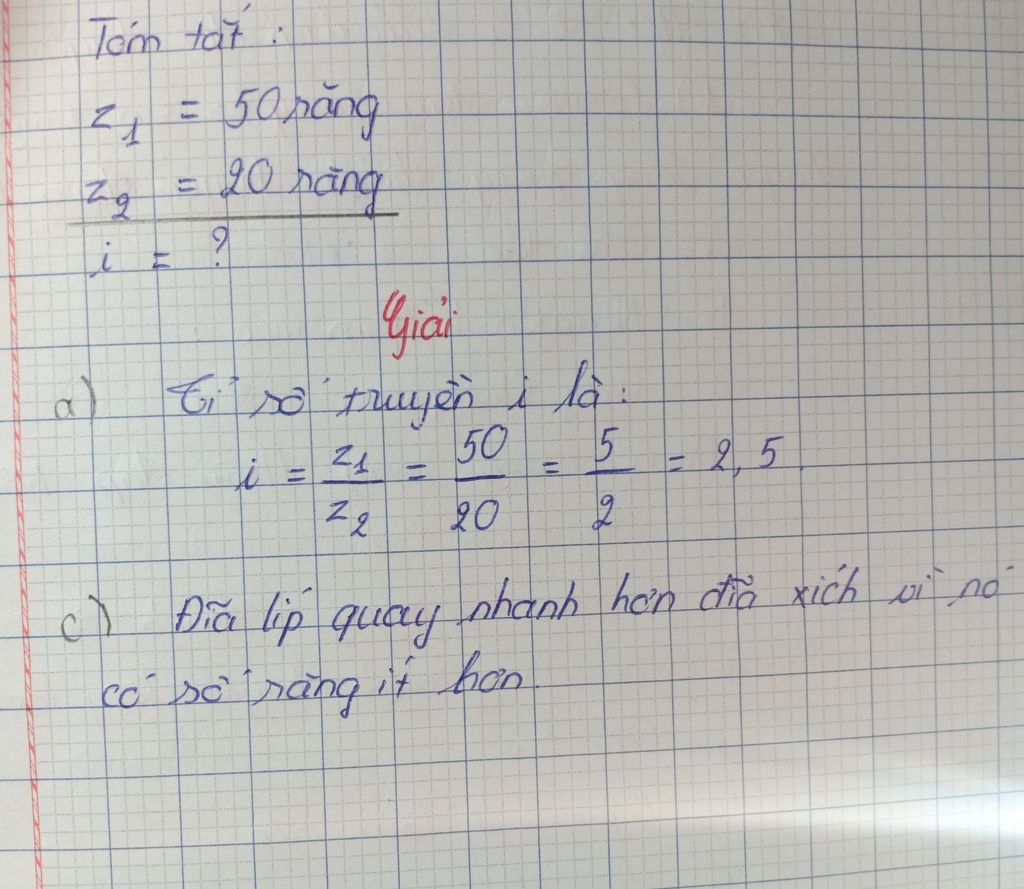 Tóm tắt :
z₁ = 50 răng
z₂ = 20 răng
i = ?
Giải
a) Tỉ số truyền i là :
i = z₁/z₂ = 50/20 = 5/2 = 2,5
c) Đĩa líp quay nhanh hơn đĩa xích vì nó
có số răng ít hơn.